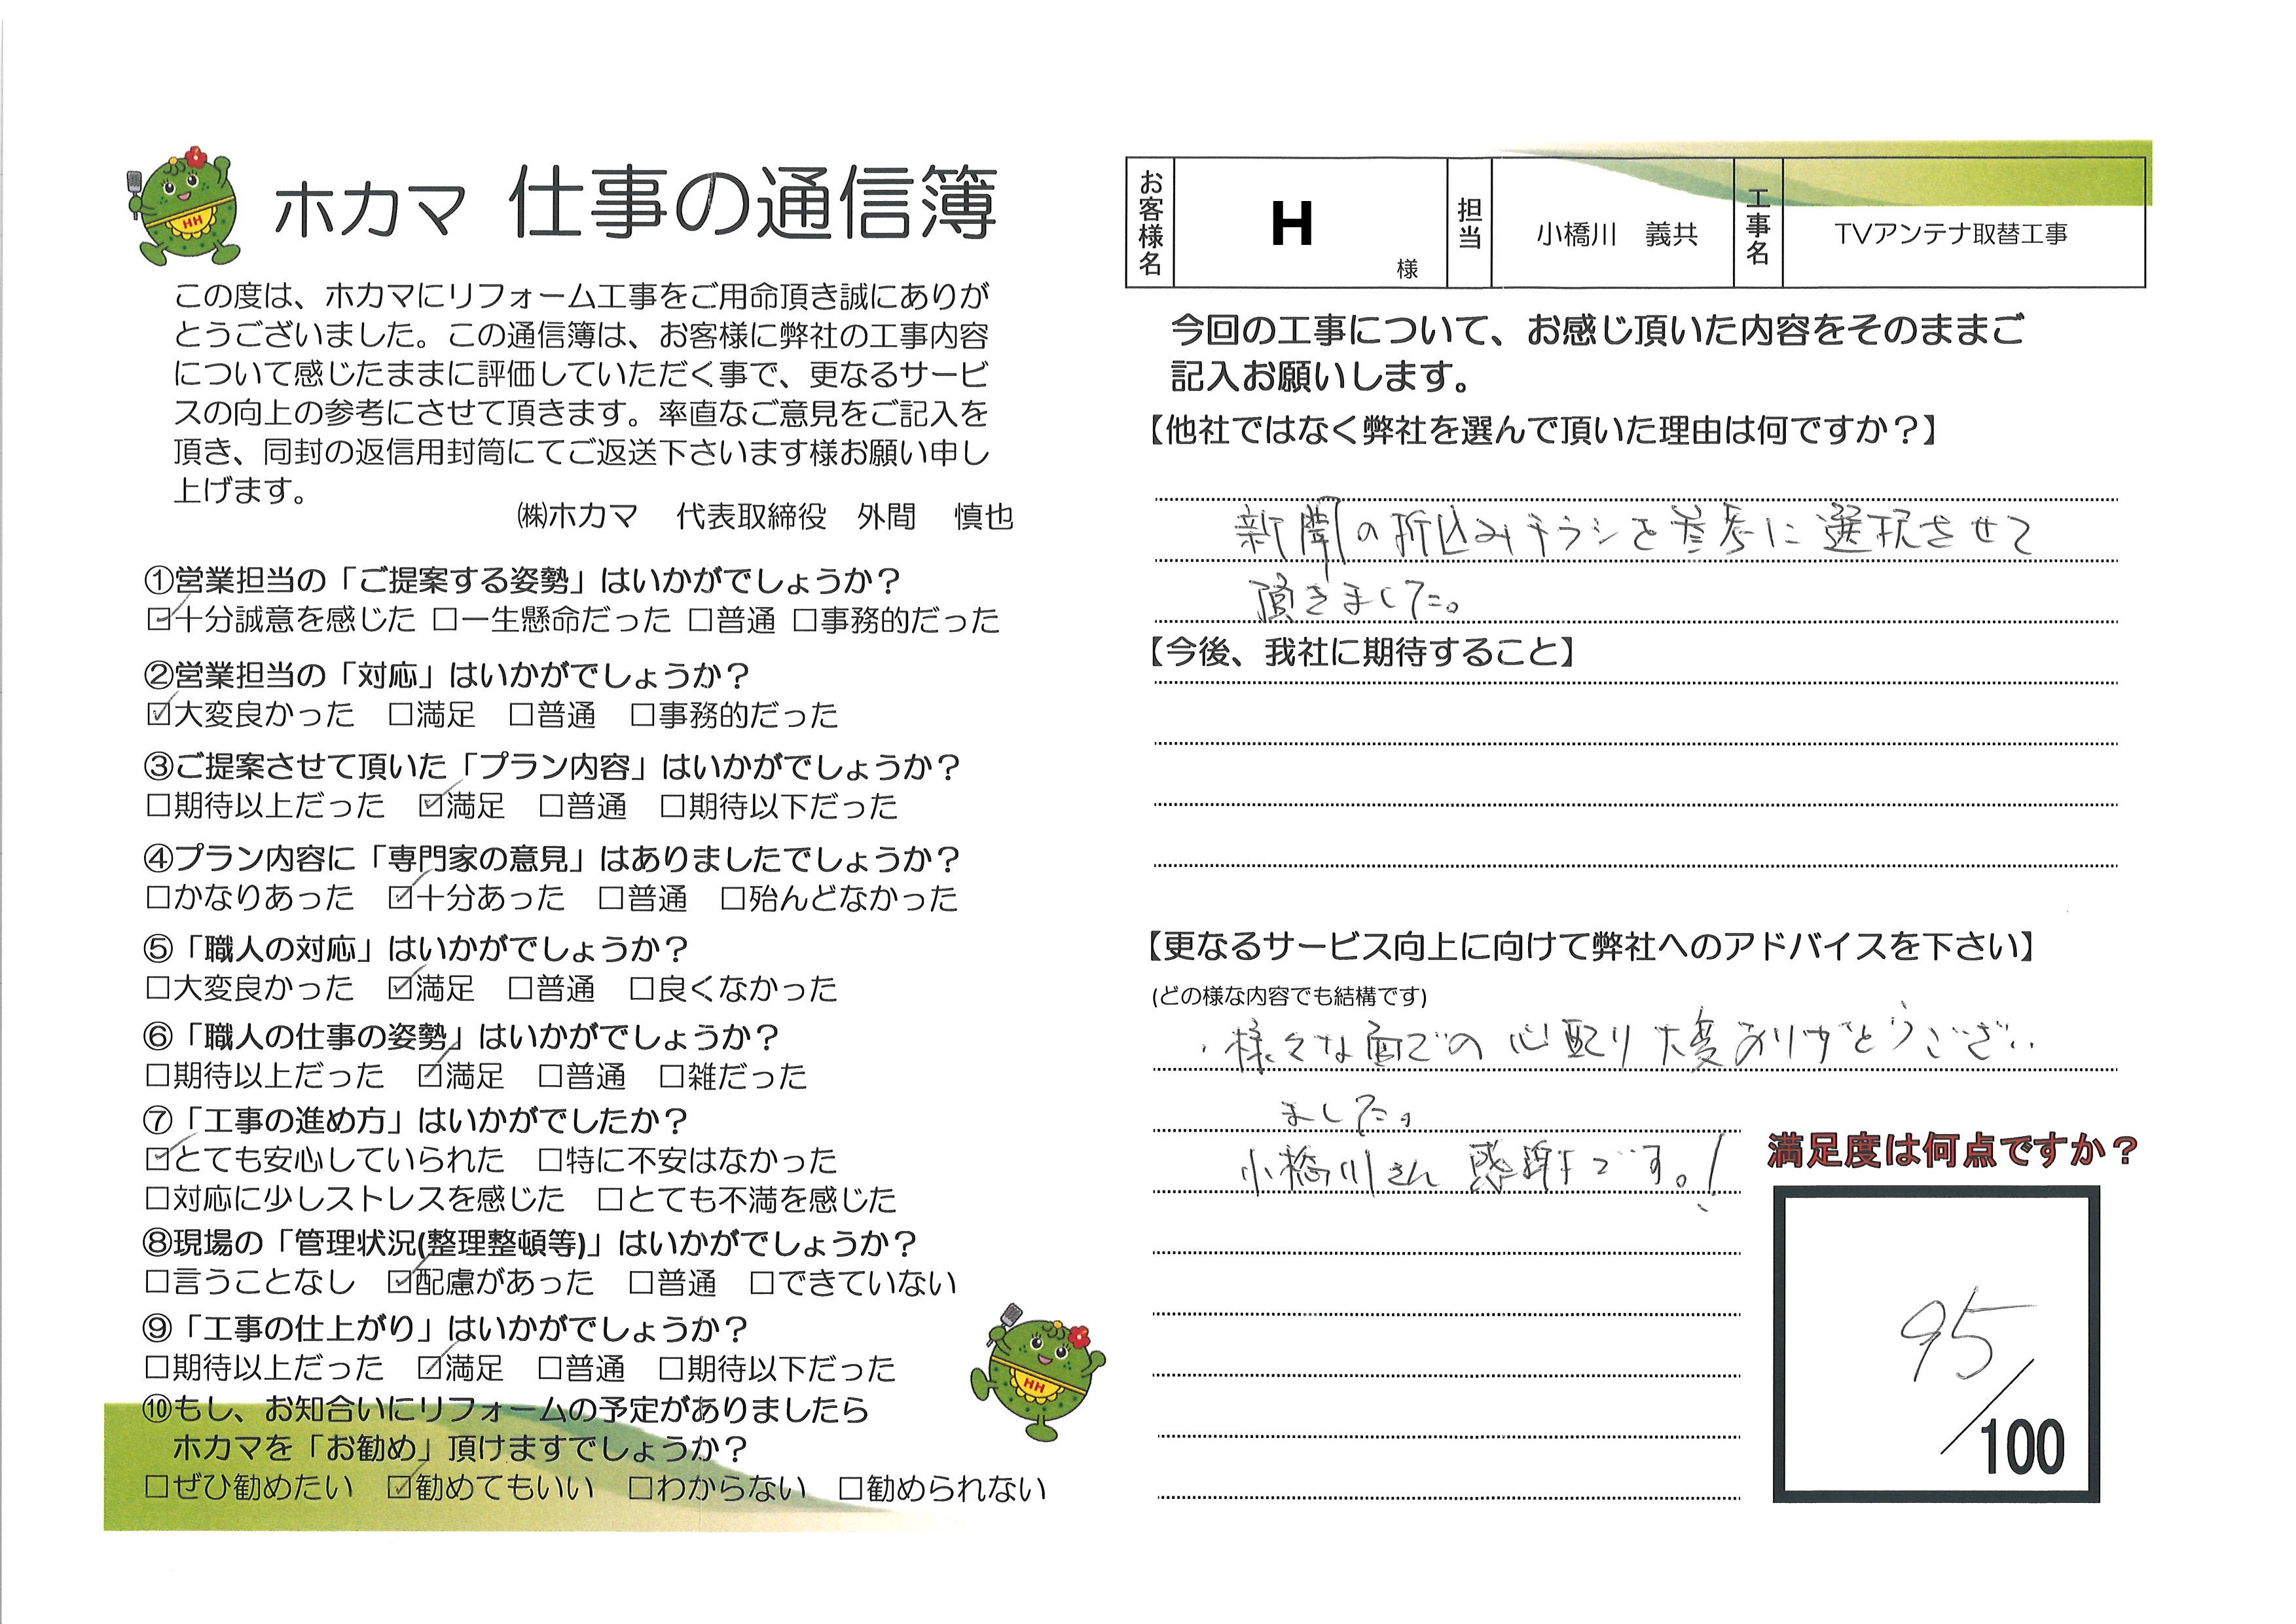 ホカマ 仕事の通信簿
この度は、ホカマにリフォーム工事をご用命頂き誠にありが
とうございました。この通信簿は、お客様に弊社の工事内容
について感じたままに評価していただく事で、更なるサービ
スの向上の参考にさせて頂きます。率直なご意見をご記入を
頂き、同封の返信用封筒にてご返送下さいます様お願い申し
上げます。
㈱ホカマ 代表取締役 外間 慎也
①営業担当の「ご提案する姿勢」はいかがでしょうか？
☑十分誠意を感じた □一生懸命だった □普通 □事務的だった
②営業担当の「対応」はいかがでしょうか？
☑大変良かった □満足 □普通 □事務的だった
③ご提案させて頂いた「プラン内容」はいかがでしょうか？
□期待以上だった ☑満足 □普通 □期待以下だった
④プラン内容に「専門家の意見」はありましたでしょうか？
□かなりあった ☑十分あった □普通 □殆んどなかった
⑤「職人の対応」はいかがでしょうか？
□大変良かった ☑満足 □普通 □良くなかった
⑥「職人の仕事の姿勢」はいかがでしょうか？
□期待以上だった ☑満足 □普通 □雑だった
⑦「工事の進め方」はいかがでしたか？
☑とても安心していられた □特に不安はなかった
□対応に少しストレスを感じた □とても不満を感じた
⑧現場の「管理状況(整理整頓等)」はいかがでしょうか？
□言うことなし ☑配慮があった □普通 □できていない
⑨「工事の仕上がり」はいかがでしょうか？
□期待以上だった ☑満足 □普通 □期待以下だった
⑩もし、お知合いにリフォームの予定がありましたら
ホカマを「お勧め」頂けますでしょうか？
□ぜひ勧めたい ☑勧めてもいい □わからない □勧められない
HH
HH
お客様名 H 様 担当 小橋川 義共 工事名 TVアンテナ取替工事
今回の工事について、お感じ頂いた内容をそのままご
記入お願いします。
【他社ではなく弊社を選んで頂いた理由は何ですか？】
新聞の折込みチラシを参考に選択させて
頂きました。
【今後、我社に期待すること】
【更なるサービス向上に向けて弊社へのアドバイスを下さい】
(どの様な内容でも結構です)
・様々な面での心配り大変ありがとうござい
ました。
小橋川さん感謝です。！
満足度は何点ですか？
95/100